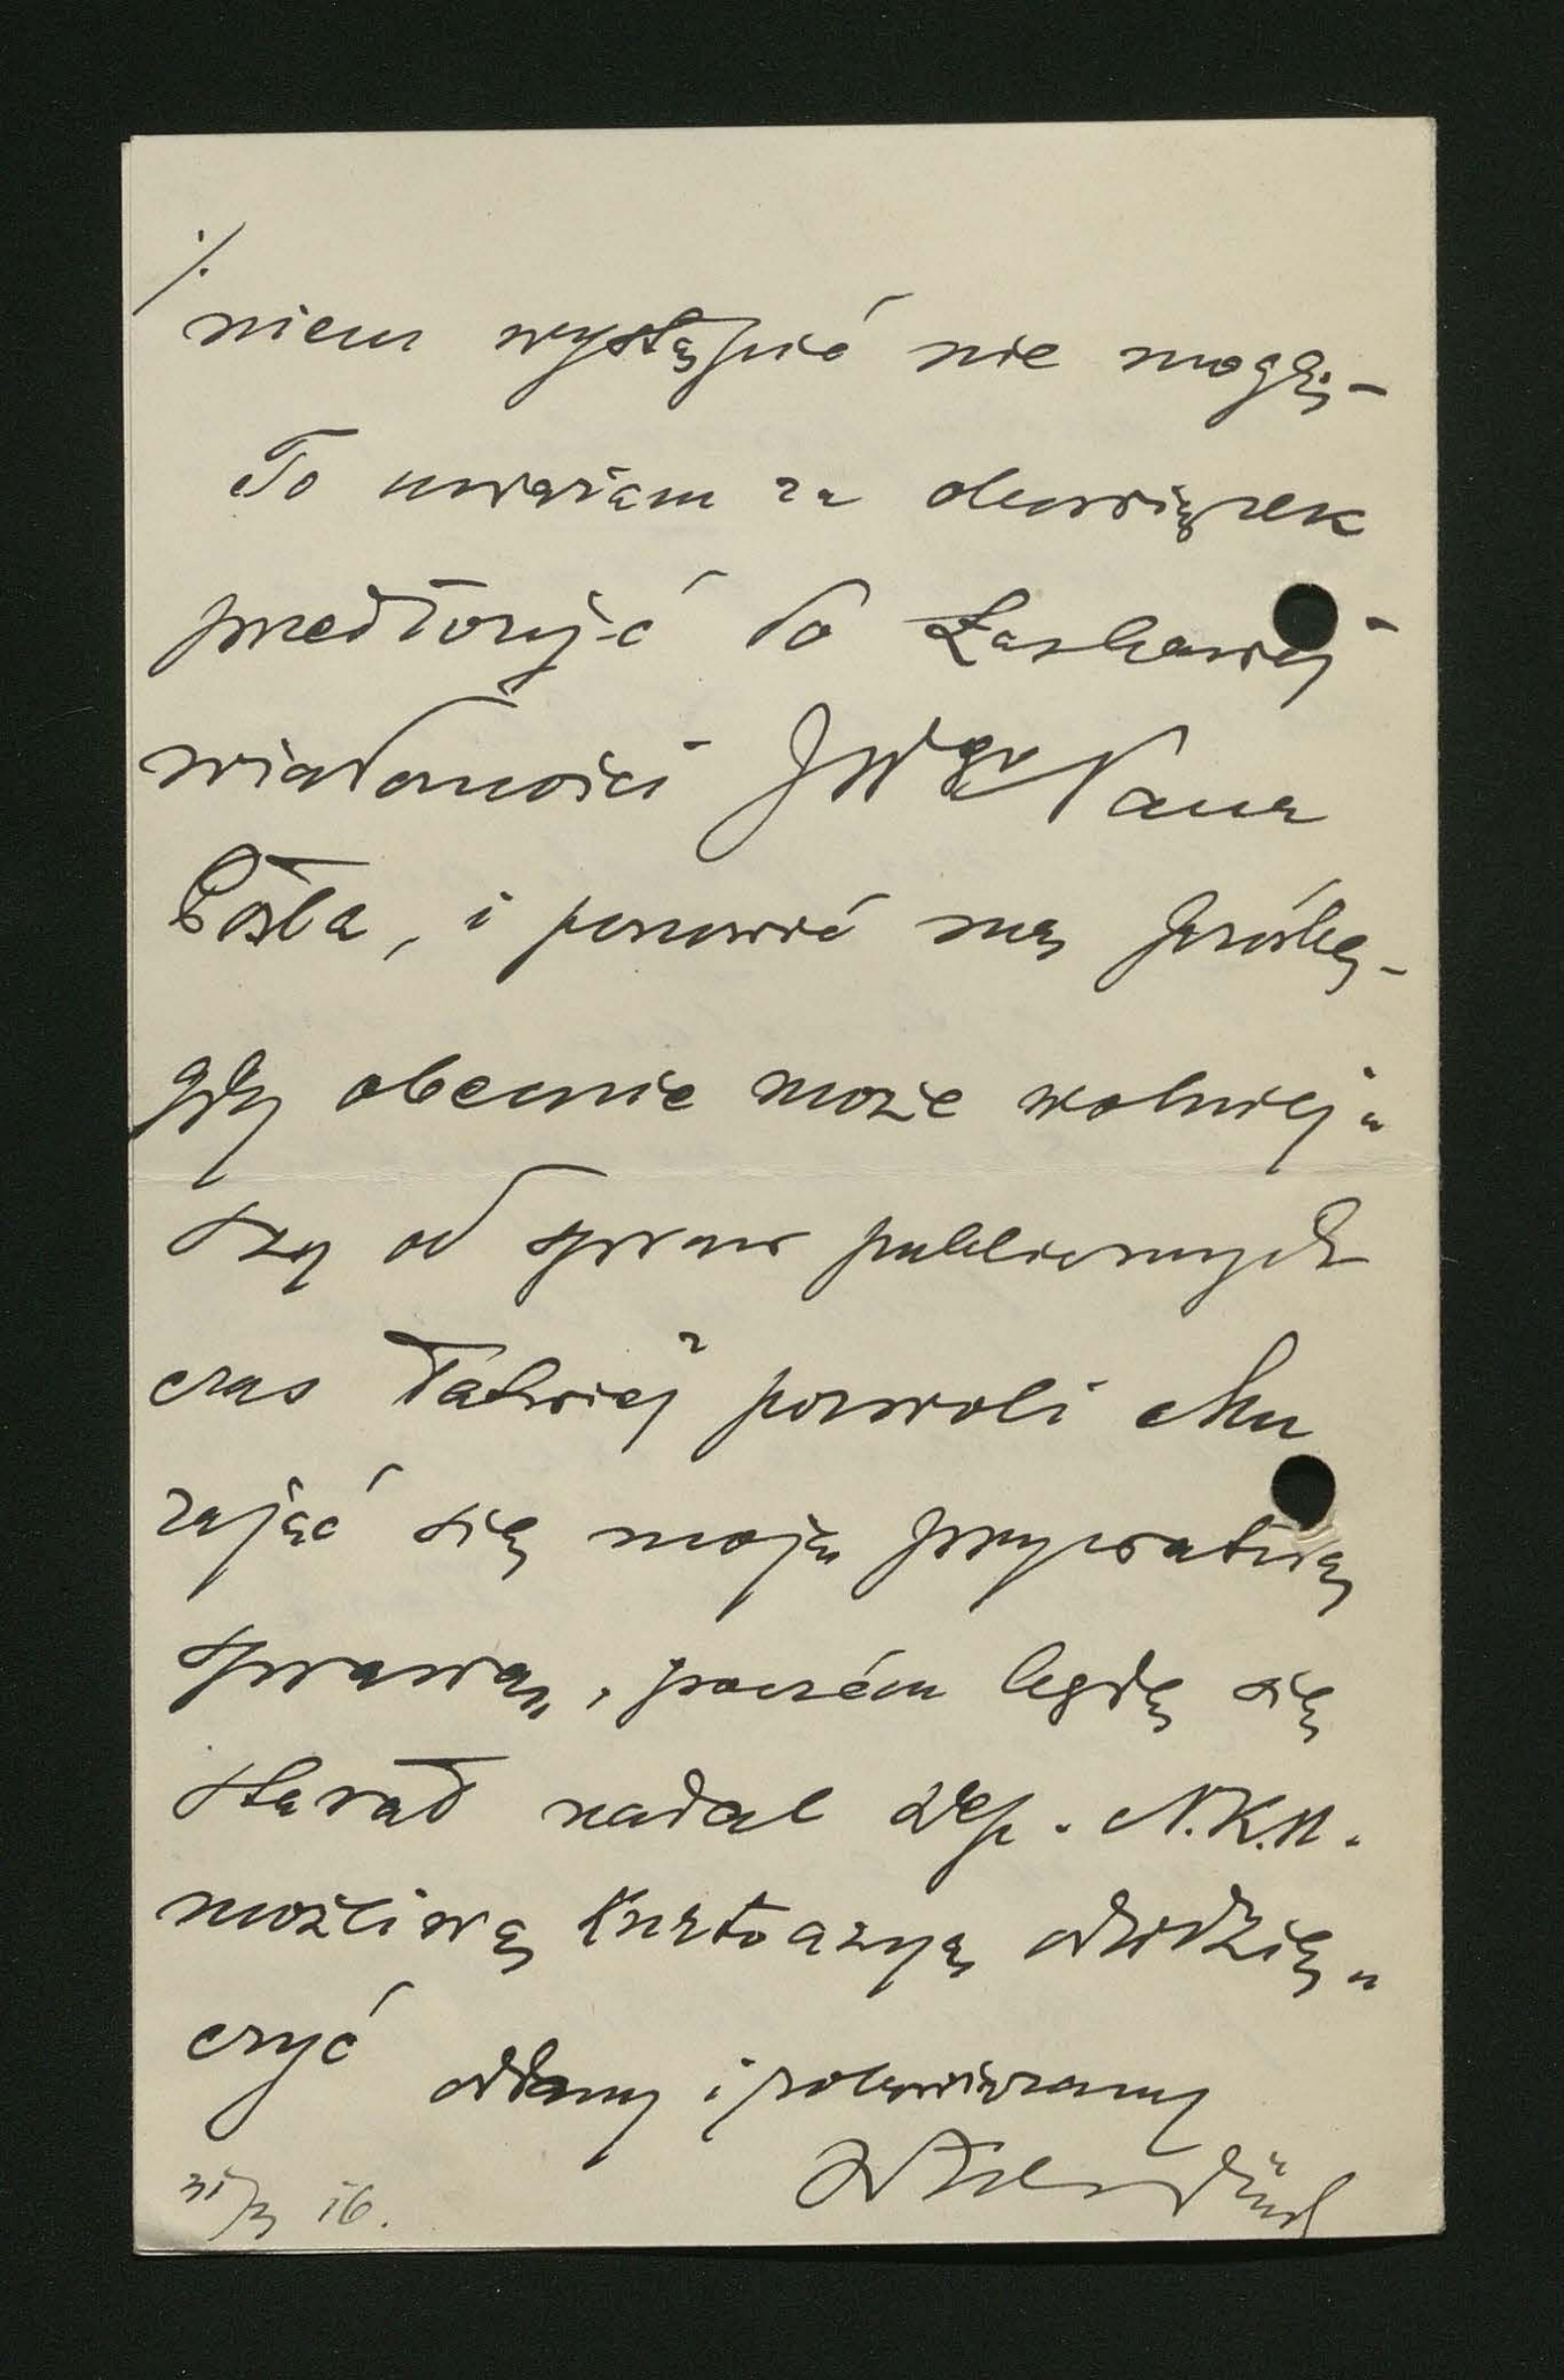 ./.
niem wystąpić nie mogę,-
To uważam za obowiązek
przedłożyć do Łaskawej
wiadomości JWgo Pana
Posła, i ponowić mą prośbę-
gdy obecnie może wolniej„
szy od spraw publicznych
czas łatwiej pozwoli Mu
zająć się moją prywatną
sprawą, poczém będę się
starał nadal Rep. N.K.N.
możliwą kurtoazyą odwdzię„
czyć
oddany i zobowiązany
31/3 16.